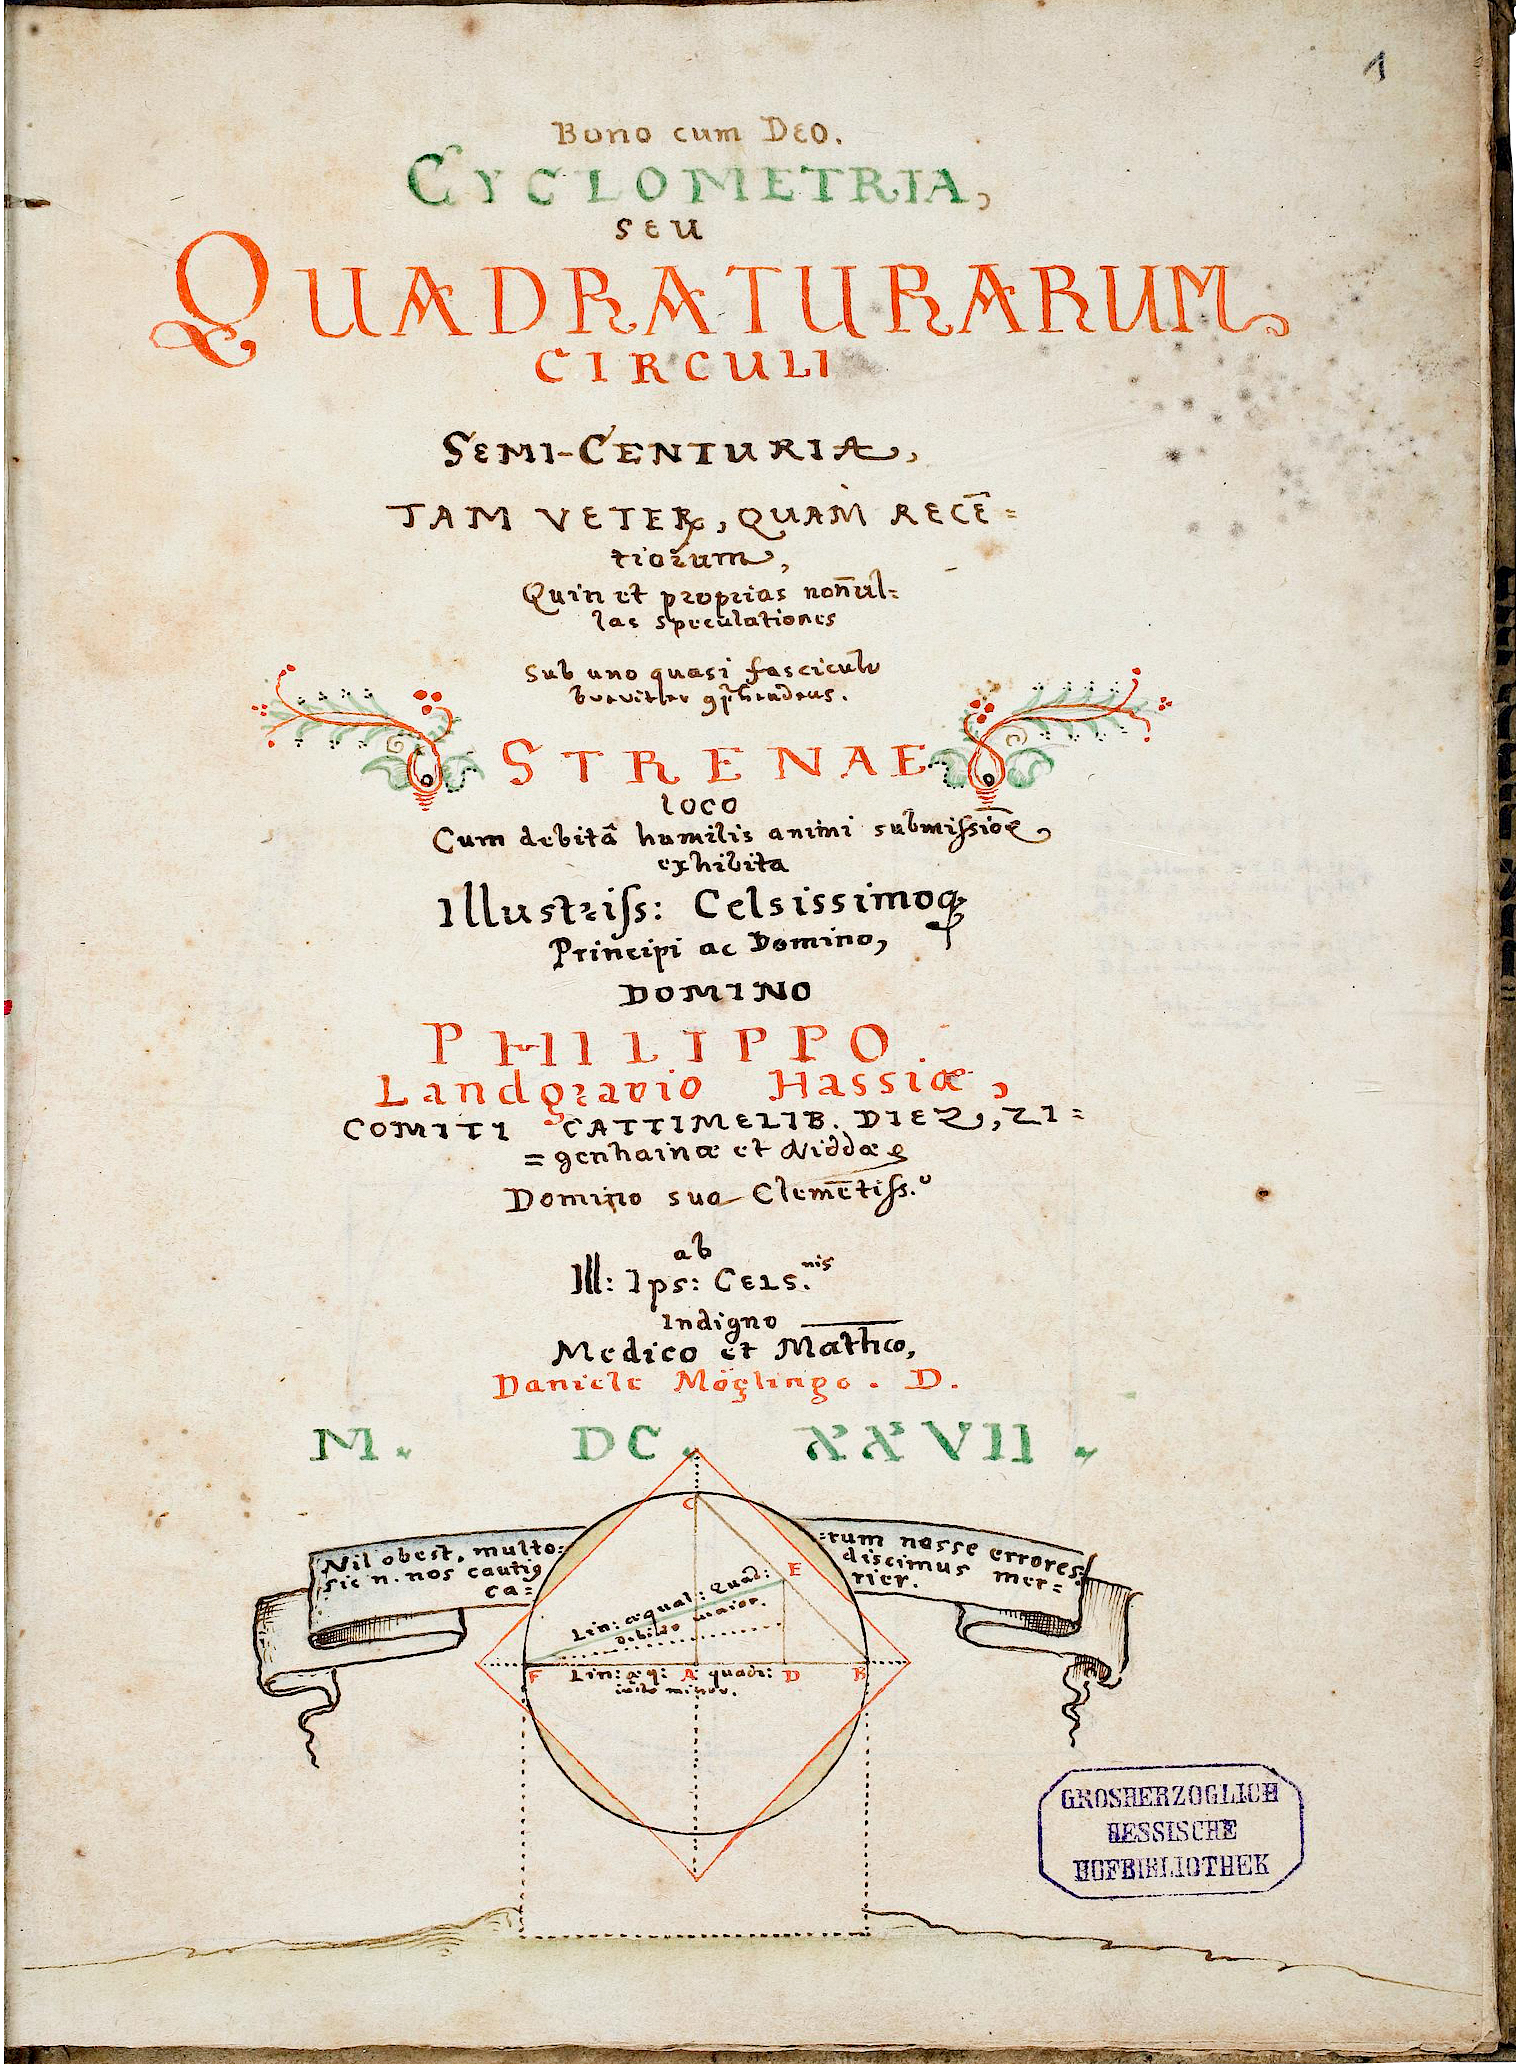 1
Bono cum Deo.
CYCLOMETRIA,
SEU
QUADRATURARUM
CIRCULI
SEMI-CENTURIA,
TAM VETERꝝ, QUAM̀ RECE̅=
tiorum,
Quin et proprias non̅ul=
las speculationes
Sub uno quasi fasciculo
breviter
STRENAE
loco
Cum debitâ humilis animi submiſsio̅e,
exhibita
Illustriſs: Celsissimoqꝫ
Principi ac Domino,
DOMINO
PHILIPPO
Landgravio Hassiæ,
COMITI CATTIMELIB. DIEZ, ZI=
=genhainæ et Niddæ
Domino suo Cleme̅tiſs.º
ab
Ill: Ips: CELS.nis
Indigno
Medico et Mathco,
Daniele Möglingo. D.
M. DC. XXVII.
Nil obest, multo=
=rum nosse errores:
sic n. nos cautiꝰ
discimus mer=
ca=
rier.
C
E
Lin: æqual: Quad:
debito maior.
F A D B
Lin: æq: quadr:
iusto minor.
GROSHERZOGLICH
HESSISCHE
HOFBIBLIOTHEK